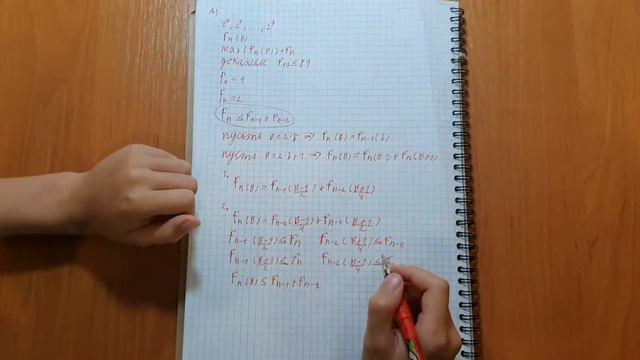 2⁰, 2¹, ..., 2⁹
fₙ(B)
max(fₙ(B))=Fₙ
докажем F₁₀ ≤ 89
F₁ = 1
F₂ = 2
Fₙ ≤ Fₙ₋₁ + Fₙ₋₂
пусть B = 2·b ⇒ fₙ(B) = fₙ₋₁(b)
пусть B = 2·b+1 ⇒ fₙ(B) = fₙ(B-1) + fₙ(B+1)
1.
fₙ(B) = fₙ₋₁(B-1/2) + fₙ₋₂(B+1/4)
2.
fₙ(B) = fₙ₋₂(B-1/4) + fₙ₋₁(B+1/2)
fₙ₋₁(B-1/2) ≤ Fₙ fₙ₋₂(B+1/4) ≤ Fₙ₋₂
fₙ₋₁(B+1/2) ≤ Fₙ fₙ₋₂(B-1/4) ≤ F
Fₙ(B) ≤ Fₙ₋₁ + Fₙ₋₂